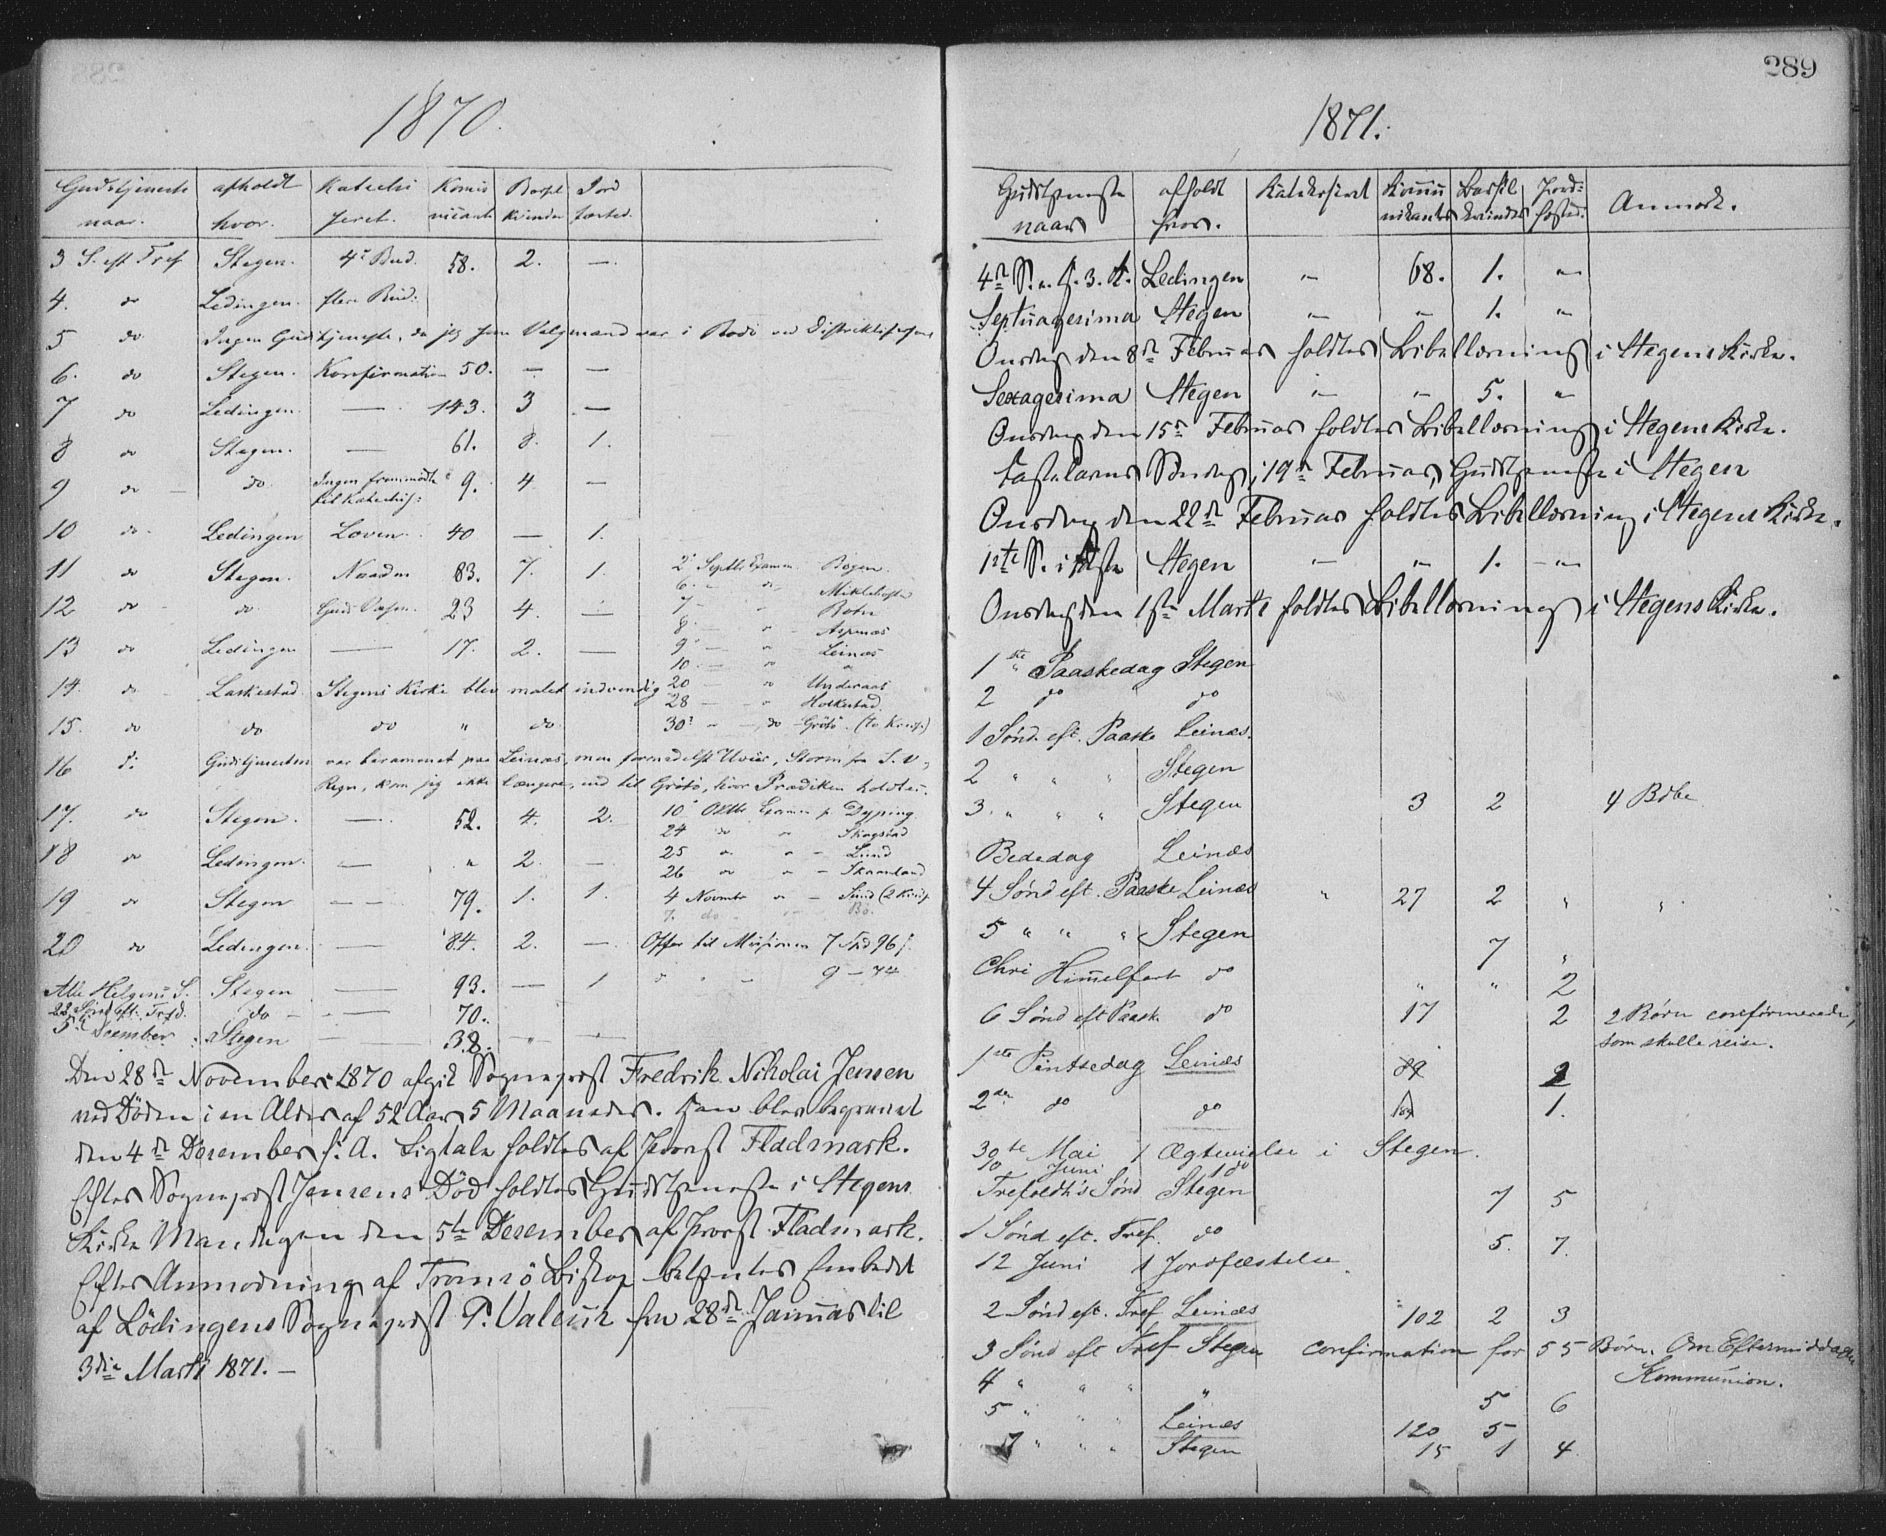 1870.
Gudstjeneste naar. | afholdt hvor. | Katechiseret. | Kommunicanter | Barselkvinder | Jordfæsted.
3 S. eft Tref | Stegen. | 4de Bud. | 58. | 2. | —
4. do | Ledingen. | flere Bud:
5 do | Ingen Gudstjeneste, da jeg som Valgmand var i Bodö ved
6. do | Stegen. | Konfirmation | 50. | — | —
7 do | Ledingen. | — | 143. | 3 | —
8 do | Stegen. | — | 61. | 8. | 1.
9 do — | do | Ingen fremmødte til Katechis: | 9. | 4 | —
10 do | Ledingen | Loven. | 40 | — | 1.
11 do | Stegen. | Naaden | 83. | 7. | 1. | 2 Septbr Examen Bogen.
6. — do Miklebostad
12 do | do | Guds Væsen | 23 | 4. | — | 7 — " Botn
8 — " — Aspenæs
13 do | Ledingen | — | 17. | 2. | — | 9 — " Leinæs
10 — " "
14. do | Laskestad | Stegens Kirke blev malet indvendig | 20 — " Underaas
28 — " Holkestad.
15. do | do | do " do | 30 " — do — Grötö. (to Kredse)
16 do | Gudstjenesten var berammet paa Leinæs, men formedelst Uveir, Storm fra S. V,
Regn, kom jeg ikke længere, end til Grötö, hvor Prædiken holdtes.
17. do | Stegen. | — | 52. | 4. | 2. | 10 Oktbr Examen p Dyping
24 do " Skogstad
18 do | Ledingen. | — | " | 2. | — | 25 " " — Lund
26 " " — Skaanland
19 do | Stegen | — — | 79. | 1. | 1. | 4 Novmbr " — Sund (2 Kreds.
7. do — Bö.
20 do | Ledingen. | — | 84. | 2. | — | Offer til Missionen 7 Spd 96 s.
Alle Helgens S. | Stegen | — | 93. | — | 1 | " " — 9 — 74
22 Sönd eft. Trefd. | do — | — | 70.
5te December | Stegen | — | 38. | — " —
Den 28de November 1870 afgik Sogneprest Fredrik Nikolai Jensen
ved Döden i en Alder af 52 Aar 5 Maaneder. Han blev begravet
den 4de December s. A. Ligtale holdtes af Provst Fladmark.
Efter Sogneprest Jensens Död holdtes Gudstjeneste i Stegens
Kirke Mandagen den 5te Desember af Provst Fladmark.
Efter Anmodning af Tromsö Biskop betjentes Embedet
af Lödingens Sogneprest P. Valeur fra 28de Januar til
3die Marts 1871. —
289
1871.
Gudstjeneste naar | afholdt hvor. | Katekiseret | Kommunikanter | Barselkvinder | Jordfæsted. | Anmerk.
4de S. e. H. 3. K. | Ledingen | " | 68. | 1. | "
Septuagesima | Stegen | " | " | 1. | "
Onsdag den 8de Februar holdtes Bibellæsning i Stegens Kirke.
Sexagesima | Stegen | " | " | 5. | "
Onsdag den 15de Februar holdtes Bibellæsning i Stegens Kirke.
Fastelavns Söndag, 19de Februar, Gudstjeneste i Stegen
Onsdag den 22de Februar holdtes Bibellæsning i Stegens Kirke.
1ste S. i Faste | Stegen | " | " | 1. | "
Onsdag den 1ste Marts holdtes Bibellæsning i Stegens Kirke.
1ste Paaskedag Stegen
2 do do
1 Sönd. eft. Paaske Leinæs.
2 " " " Stegen
3. " " " Stegen | 3 | 2 | 4 Böbe
Bededag Leinæs
4 Sönd eft. Paaske Leinæs | " | 27 | 2 | " | "
5 " " " Stegen | 7 | "
Chri Himmelfart do | " | " | 2
6 Sönd eft Paask. do | 17 | 2 | 2 Börn confirmerede,
som skulle reise.
1ste Pintsedag Leinæs | 89 | 2
2den do do | 1.
30te Mai 1 Ægtevielse i Stegen.
10 Juni 1 do
Trefoldh's Sönd Stegen | 7 | 5
1 Sönd eft. Tref. do | 5. | 7.
12 Juni 1 Jordfæstelse.
2 Sönd eft. Tref Leinæs | 102 | 2 | 3
3 Sönd eft Tref Stegen confirmation for 55 Börn. Om Eftermiddagen
Kommunion.
4 " " " " | 5 | 6
5 " " " Leinæs | 120 | 5
7 " " " Stegen | 15 | 1 | 4